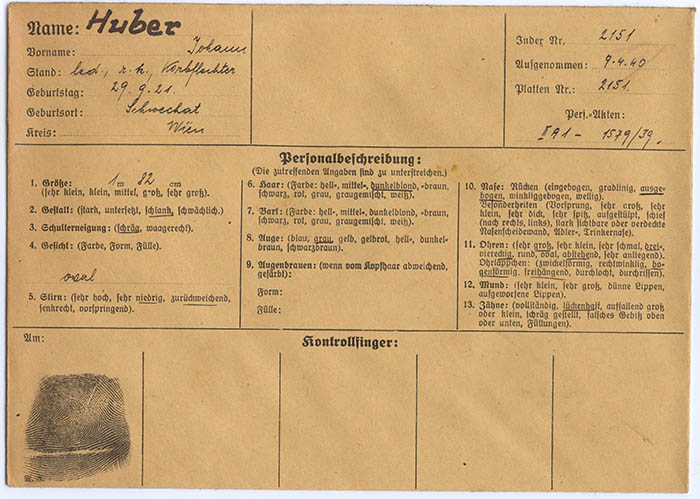 Name: Huber
Vorname: Johann
Stand: led., r. k., Korbflechter
Geburtstag: 29. 9. 21.
Geburtsort: Schwechat
Kreis: Wien
Index Nr. 2151
Aufgenommen: 9.4.40
Platten Nr.: 2151.
Pers.-Akten:
II A 1 - 1579/39.
Personalbeschreibung:
(Die zutreffenden Angaben sind zu unterstreichen.)
1. Größe: 1 m 82 cm
(sehr klein, klein, mittel, groß, sehr groß).
2. Gestalt: (stark, untersetzt, schlank, schwächlich).
3. Schulterneigung: (schräg, waagerecht).
4. Gesicht: (Farbe, Form, Fülle).
oval
5. Stirn: (sehr hoch, sehr niedrig, zurückweichend,
senkrecht, vorspringend).
6. Haar: (Farbe: hell-, mittel-, dunkelblond, -braun,
schwarz, rot, grau, graugemischt, weiß).
7. Bart: (Farbe: hell-, mittel-, dunkelblond, -braun,
schwarz, rot, grau, graugemischt, weiß).
8. Auge: (blau, grau, gelb, gelbrot, hell-, dunkel-
braun, schwarzbraun).
9. Augenbrauen: (wenn vom Kopfhaar abweichend,
gefärbt):
Form:
Fülle:
10. Nase: Rücken (eingebogen, gradlinig, ausge-
bogen, winkliggebogen, wellig).
Besonderheiten (Vorsprung, sehr groß, sehr
klein, sehr dick, sehr spitz, aufgestülpt, schief
(nach rechts, links), stark sichtbare oder verdeckte
Nasenscheidewand, Adler-, Trinkernase).
11. Ohren: (sehr groß, sehr klein, sehr schmal, drei-,
viereckig, rund, oval, abstehend, sehr anliegend).
Ohrläppchen: (zwickelförmig, rechtwinklig, bo-
genförmig, freihängend, durchlocht, durchrissen).
12. Mund: (sehr klein, sehr groß, dünne Lippen,
aufgeworfene Lippen).
13. Zähne: (vollständig, lückenhaft, auffallend groß
oder klein, schräg gestellt, falsches Gebiß oben
oder unten, Füllungen).
Am:
Kontrollfinger: